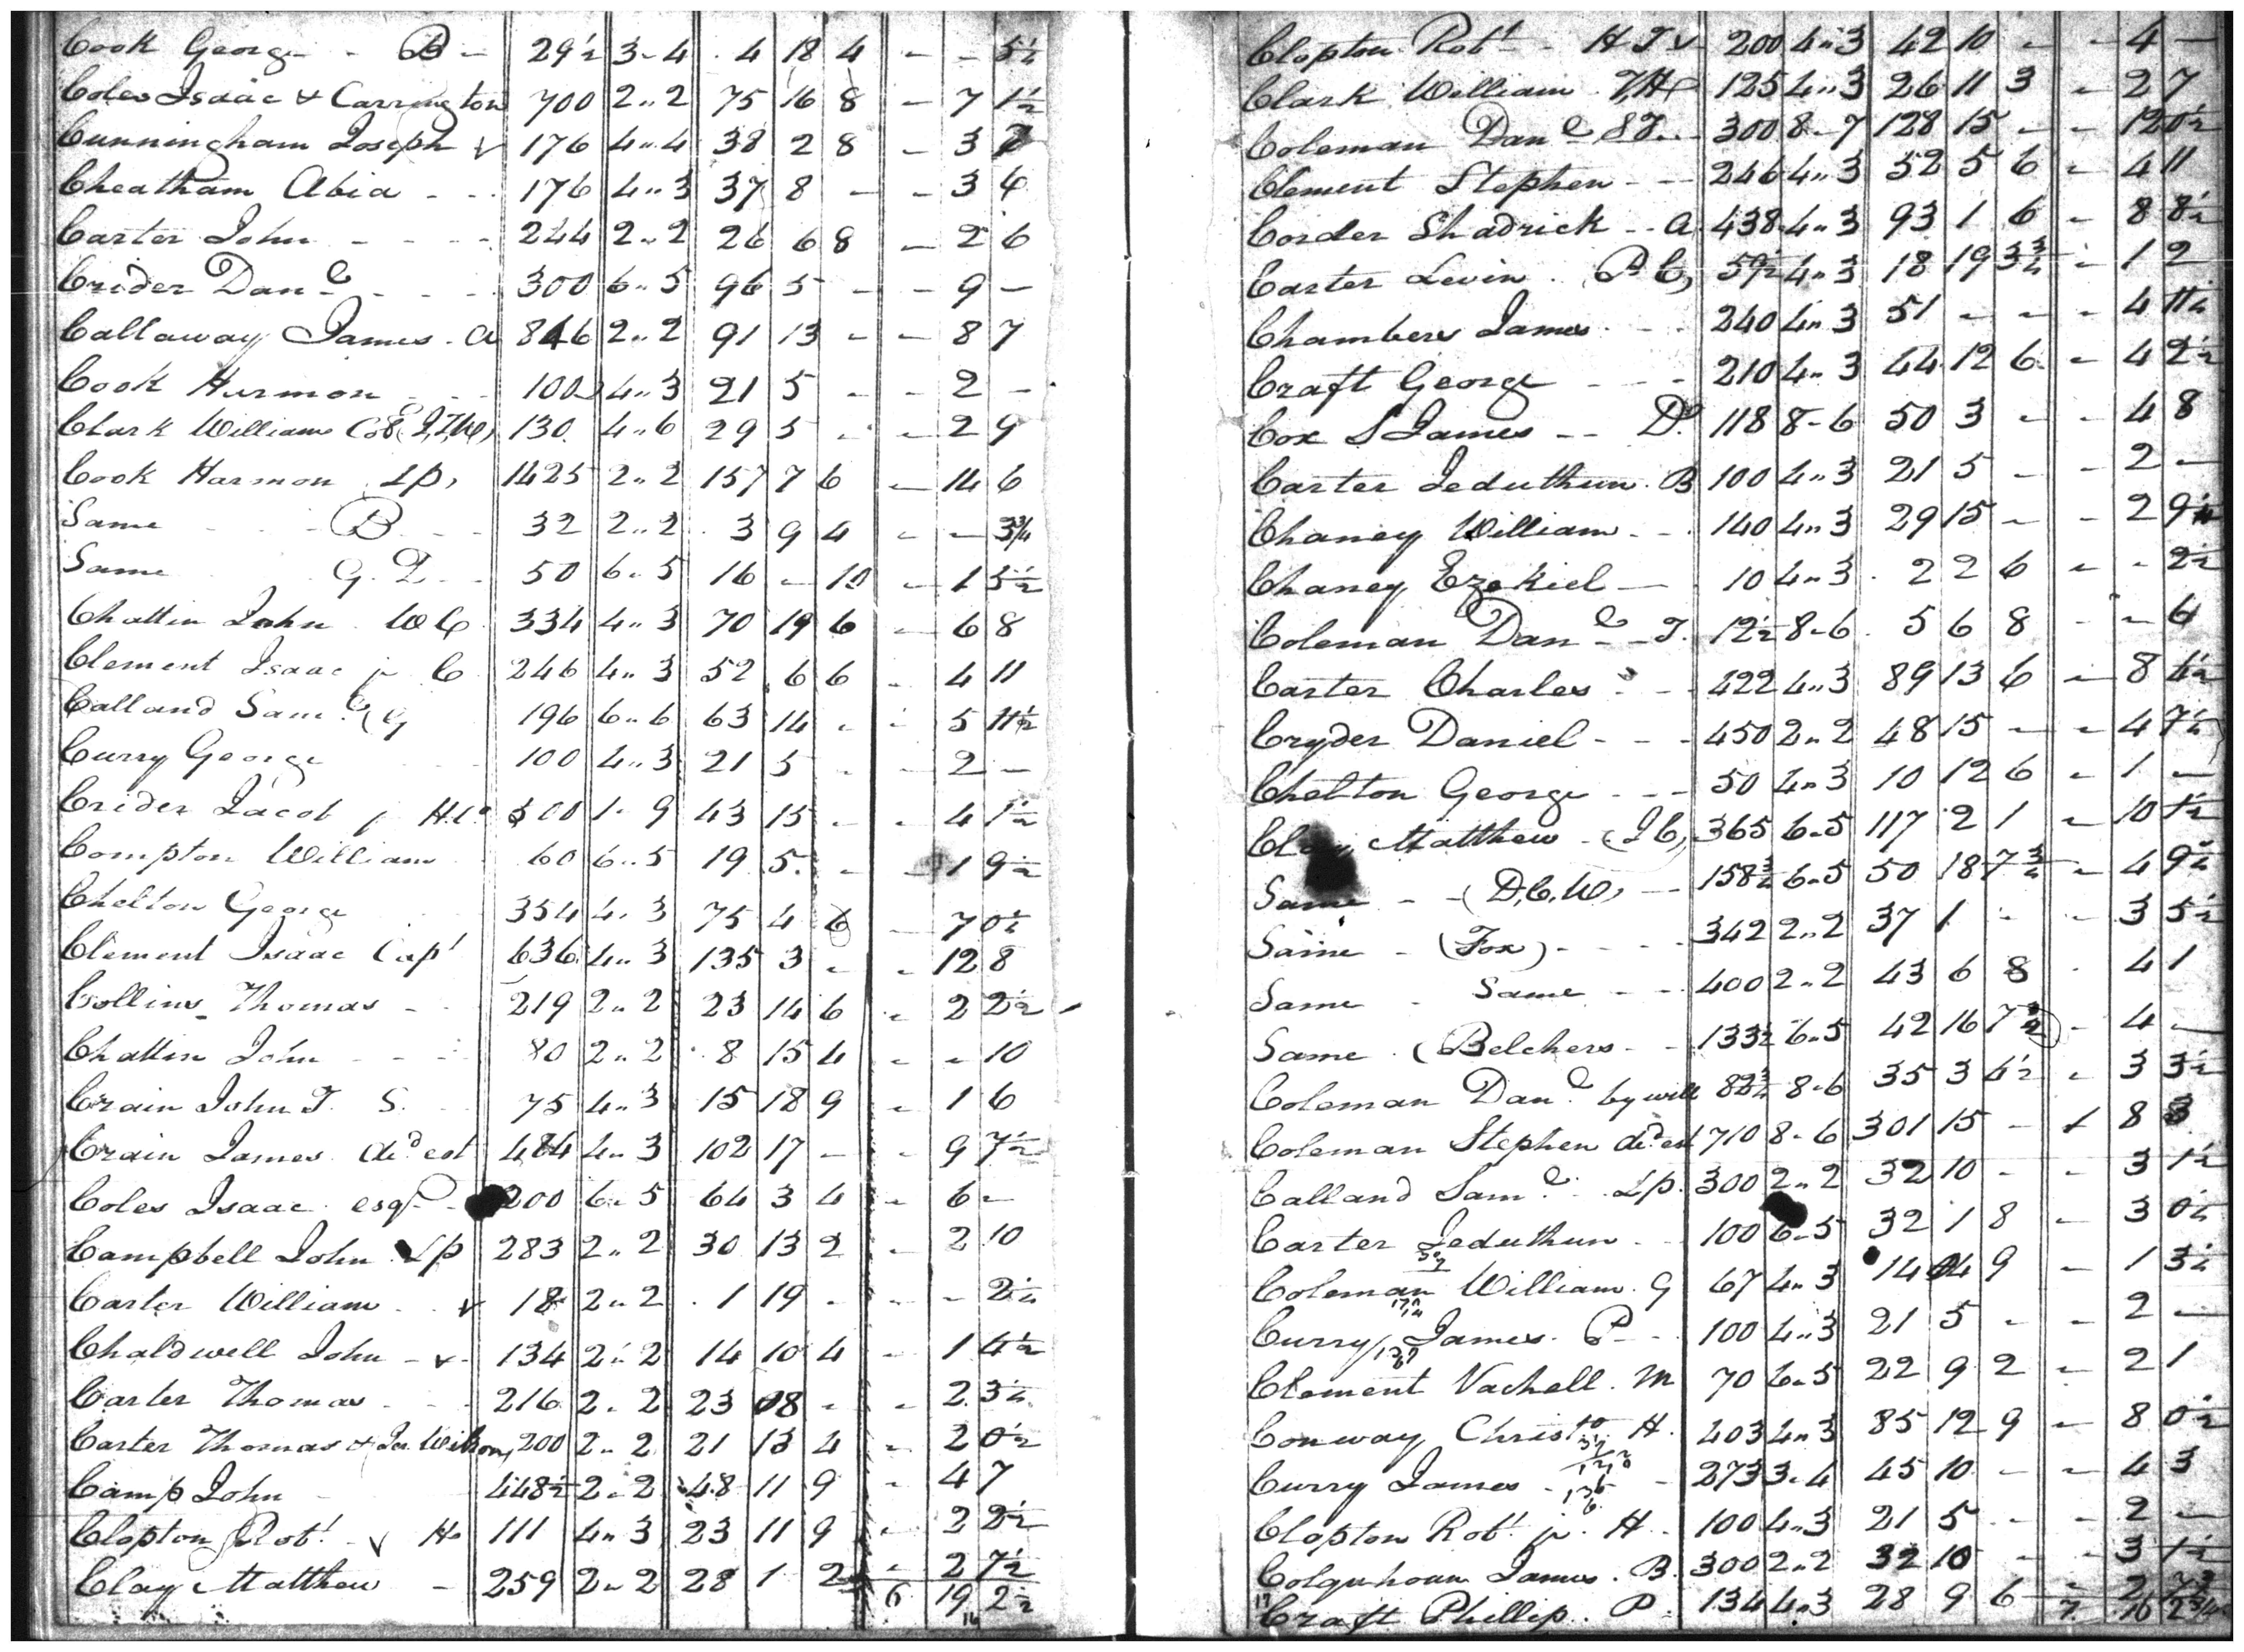 Cook George - B - 29½ 3-4 4 18 4 - - 5¼
Coles Isaac & Carrington 700 2..2 75 16 8 - 7 1½
Cunningham Joseph v 176 4..4 38 2 8 - 3
Cheatham Abia - - 176 4..3 37 8 - - 3 6
Carter John - - - - 244 2..2 26 6 8 - 2 6
Crider Danl - - - 300 6..5 96 5 - - 9 -
Callaway James - a 846 2..2 91 13 - - 8 7
Cook Harmon - - 100 4..3 21 5 - - 2 -
Clark William 130 4..6 29 5 - - 2 9
Cook Harmon Lp, 1425 2..2 157 7 6 - 14 6
Same - - B - - 32 2..2 3 9 4 - - 3¾
Same G. T. - - 50 6..5 16 - 10 - 1 5½
Chattin John WC 334 4..3 70 19 6 - 6 8
Clement Isaac jr C 246 4..3 52 6 6 - 4 11
Calland Saml (G 196 6..6 63 14 - - 5 11½
Curry George 100 4..3 21 5 - - 2 -
Crider Jacob 500 1..9 43 15 - - 4 1½
Compton William 60 6..5 19 5 - - 1 9½
Chelton George 354 4..3 75 4 6 - 7 0½
Clement Isaac Capt 636 4..3 135 3 - - 12 8
Collins Thomas - - 219 2..2 23 14 6 - 2 2½
Chattin John - - - 80 2..2 8 15 4 - - 10
Crain John T. S. 75 4..3 15 18 9 - 1 6
Crain James decd est 484 4..3 102 17 - - 9 7½
Coles Isaac esqr - 200 6..5 64 3 4 - 6 -
Campbell John Lp 283 2..2 30 13 2 - 2 10
Carter William - v 18 2..2 1 19 - - - 2¼
Chaldwell John - v - 134 2..2 14 10 4 - 1 4½
Carter Thomas - - 216 2..2 23 8 - - 2 3¼
Carter Thomas & Jas Wilson, 200 2..2 21 13 4 - 2 0½
Camp John 448½ 2..2 48 11 9 - 4 7
Clopton Robt v Ho 111 4..3 23 11 9 - 2 2½
Clay Matthew - 259 2..2 28 1 2 - 2 7½
6 19 2½
Clopton Robt - H T v 200 4..3 42 10 - - 4 -
Clark William 125 4..3 26 11 3 - 2 7
Coleman Danl ST. - 300 8-7 128 15 - - 12 0½
Clement Stephen - - 246 4..3 52 5 6 - 4 11
Corder Shadrick - - a 438 4..3 93 1 6 - 8 8½
Carter Levin . P C, 59½ 4..3 18 19 3¾ - 1 2
Chambers James - - 240 4..3 51 - - - 4 11½
Craft George - - - 210 4..3 44 12 6 - 4 2½
Cox S James - - Do 118 8-6 50 3 - - 4 8
Carter Jeduthun . B 100 4..3 21 5 - - 2 -
Chaney William - - 140 4..3 29 15 - - 2 9
Chaney Ezekiel - 10 4..3 2 2 6 - - 2½
Coleman Danl - - T. 12½ 8-6 5 6 8 - - 6
Carter Charles - - 422 4..3 89 13 6 - 8 4½
Cryder Daniel - - - 450 2..2 48 15 - - 4 7½
Chelton George - - - 50 4..3 10 12 6 - 1 -
Clay Matthew - (J C, 365 6..5 117 2 1 - 10 1½
Same - - (D.C.W, - 158¾ 6..5 50 18 7¾ - 4 9¼
Same - (Fox) - - - - 342 2..2 37 1 - - 3 5½
Same - Same - - 400 2..2 43 6 8 - 4 1
Same (Belchers - - 133½ 6..5 42 16 7 - 4 -
Coleman Danl by will 82¾ 8-6 35 3 4½ - 3 3½
Coleman Stephen decd est 710 8-6 301 15 - 1 8 3
Calland Saml - Lp. 300 2..2 32 10 - - 3 1½
Carter Jeduthun - 100 6..5 32 1 8 - 3 0¼
Coleman William . G 67 4..3 14 4 9 - 1 3¼
Curry James . P - - 100 4..3 21 5 - - 2 -
Clement Vachell . M 70 6..5 22 9 2 - 2 1
Conway Christo H. 403 4..3 85 12 9 - 8 0½
Curry James - - 273 3-4 45 10 - - 4 3
Clopton Robt jr . H - 100 4..3 21 5 - - 2 -
Colquhoun James . B. 300 2..2 32 10 - - 3 1½
Craft Phillip . P. 134 4..3 28 9 6 - 2 7¾
7 16 2¾